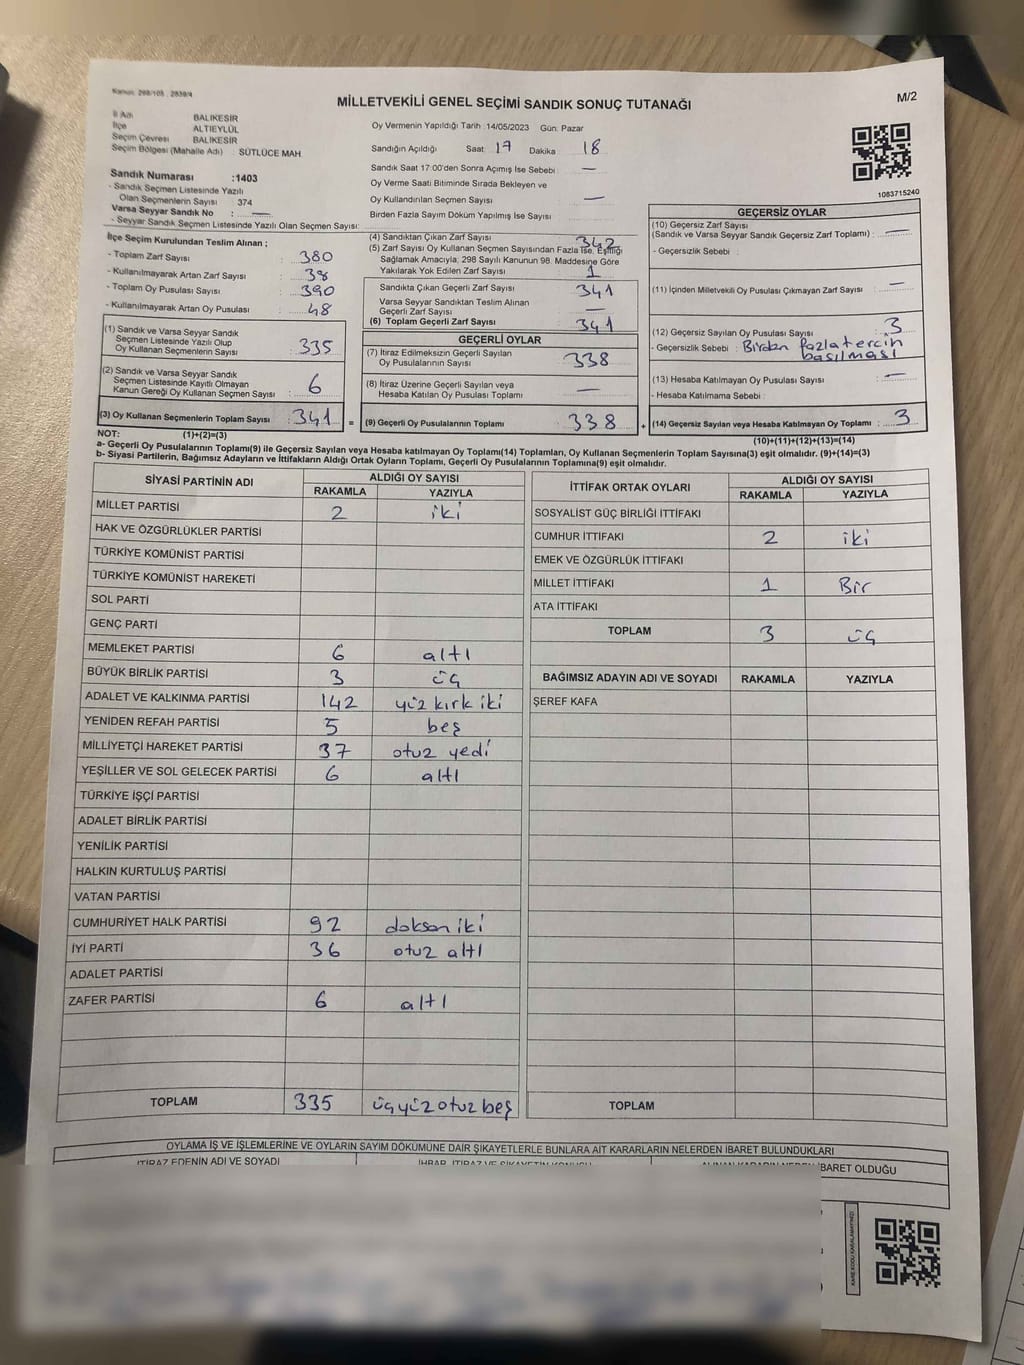 Kanun: 298/105 , 2839/4
MİLLETVEKİLİ GENEL SEÇİMİ SANDIK SONUÇ TUTANAĞI
M/2
İl Adı BALIKESİR
İlçe ALTIEYLÜL
Seçim Çevresi BALIKESİR
Seçim Bölgesi (Mahalle Adı) : SÜTLÜCE MAH
Oy Vermenin Yapıldığı Tarih 14/05/2023 Gün: Pazar
Sandığın Açıldığı Saat: 17 Dakika : 18
Sandık Saat 17:00'den Sonra Açımış İse Sebebi : —
Oy Verme Saati Bitiminde Sırada Bekleyen ve
Oy Kullandırılan Seçmen Sayısı : —
Birden Fazla Sayım Döküm Yapılmış İse Sayısı
1083715240
Sandık Numarası :1403
- Sandık Seçmen Listesinde Yazılı
Olan Seçmenlerin Sayısı : 374
Varsa Seyyar Sandık No : —
- Seyyar Sandık Seçmen Listesinde Yazılı Olan Seçmen Sayısı:
İlçe Seçim Kurulundan Teslim Alınan ;
- Toplam Zarf Sayısı : 380
- Kullanılmayarak Artan Zarf Sayısı : 38
- Toplam Oy Pusulası Sayısı : 390
- Kullanılmayarak Artan Oy Pusulası : 48
(1) Sandık ve Varsa Seyyar Sandık
Seçmen Listesinde Yazılı Olup
Oy Kullanan Seçmenlerin Sayısı : 335
(2) Sandık ve Varsa Seyyar Sandık
Seçmen Listesinde Kayıtlı Olmayan
Kanun Gereği Oy Kullanan Seçmen Sayısı : 6
(3) Oy Kullanan Seçmenlerin Toplam Sayısı : 341 =
(4) Sandıktan Çıkan Zarf Sayısı : 342
(5) Zarf Sayısı Oy Kullanan Seçmen Sayısından Fazla İse, Eşitliği
Sağlamak Amacıyla; 298 Sayılı Kanunun 98. Maddesine Göre
Yakılarak Yok Edilen Zarf Sayısı : 1
Sandıkta Çıkan Geçerli Zarf Sayısı : 341
Varsa Seyyar Sandıktan Teslim Alınan
Geçerli Zarf Sayısı : —
(6) Toplam Geçerli Zarf Sayısı : 341
GEÇERLİ OYLAR
(7) İtiraz Edilmeksizin Geçerli Sayılan
Oy Pusulalarının Sayısı : 338
(8) İtiraz Üzerine Geçerli Sayılan veya
Hesaba Katılan Oy Pusulası Toplamı : —
(9) Geçerli Oy Pusulalarının Toplamı : 338 +
GEÇERSİZ OYLAR
(10) Geçersiz Zarf Sayısı
(Sandık ve Varsa Seyyar Sandık Geçersiz Zarf Toplamı) : —
- Geçersizlik Sebebi :
(11) İçinden Milletvekili Oy Pusulası Çıkmayan Zarf Sayısı : —
(12) Geçersiz Sayılan Oy Pusulası Sayısı : 3
- Geçersizlik Sebebi : Birden fazla tercih
basılması
(13) Hesaba Katılmayan Oy Pusulası Sayısı : —
- Hesaba Katılmama Sebebi :
(14) Geçersiz Sayılan veya Hesaba Katılmayan Oy Toplamı : 3
NOT: (1)+(2)=(3)
(10)+(11)+(12)+(13)=(14)
a- Geçerli Oy Pusulalarının Toplamı(9) ile Geçersiz Sayılan veya Hesaba katılmayan Oy Toplamı(14) Toplamları, Oy Kullanan Seçmenlerin Toplam Sayısına(3) eşit olmalıdır. (9)+(14)=(3)
b- Siyasi Partilerin, Bağımsız Adayların ve İttifakların Aldığı Ortak Oyların Toplamı, Geçerli Oy Pusulalarının Toplamına(9) eşit olmalıdır.
SİYASİ PARTİNİN ADI ALDIĞI OY SAYISI
RAKAMLA YAZIYLA
MİLLET PARTİSİ 2 iki
HAK VE ÖZGÜRLÜKLER PARTİSİ
TÜRKİYE KOMÜNİST PARTİSİ
TÜRKİYE KOMÜNİST HAREKETİ
SOL PARTİ
GENÇ PARTİ
MEMLEKET PARTİSİ 6 altı
BÜYÜK BİRLİK PARTİSİ 3 üç
ADALET VE KALKINMA PARTİSİ 142 yüz kırk iki
YENİDEN REFAH PARTİSİ 5 beş
MİLLİYETÇİ HAREKET PARTİSİ 37 otuz yedi
YEŞİLLER VE SOL GELECEK PARTİSİ 6 altı
TÜRKİYE İŞÇİ PARTİSİ
ADALET BİRLİK PARTİSİ
YENİLİK PARTİSİ
HALKIN KURTULUŞ PARTİSİ
VATAN PARTİSİ
CUMHURİYET HALK PARTİSİ 92 doksan iki
İYİ PARTİ 36 otuz altı
ADALET PARTİSİ
ZAFER PARTİSİ 6 altı
TOPLAM 335 üçyüz otuz beş
İTTİFAK ORTAK OYLARI ALDIĞI OY SAYISI
RAKAMLA YAZIYLA
SOSYALİST GÜÇ BİRLİĞİ İTTİFAKI
CUMHUR İTTİFAKI 2 iki
EMEK VE ÖZGÜRLÜK İTTİFAKI
MİLLET İTTİFAKI 1 Bir
ATA İTTİFAKI
TOPLAM 3 üç
BAĞIMSIZ ADAYIN ADI VE SOYADI RAKAMLA YAZIYLA
ŞEREF KAFA
TOPLAM
OYLAMA İŞ VE İŞLEMLERİNE VE OYLARIN SAYIM DÖKÜMÜNE DAİR ŞİKAYETLERLE BUNLARA AİT KARARLARIN NELERDEN İBARET BULUNDUKLARI
İTİRAZ EDENİN ADI VE SOYADI
İBARET OLDUĞU
KARE KODU KARALAMAYINIZ!